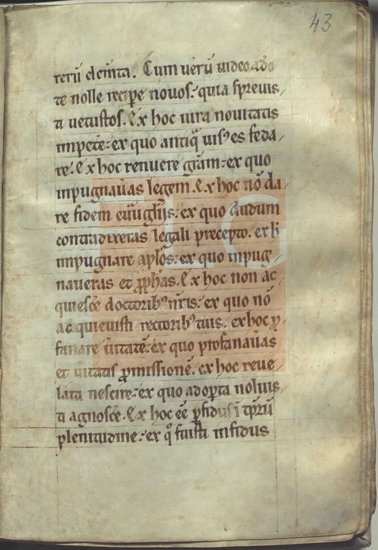 43
rerū clemta. Cum uerū uideo a do
te nolle recipe nouos: quia spreuis
ti uetustos. Ex hoc iura nouitatis
impete: ex quo antiq uisꝰ es feda
re. Ex hoc renuere gram: ex quo
inpugnauas legem. Ex hoc nō da
re fidem euughiis: ex quo dudum
contradixeras legali precepto. ex h
impugnare aplos: ex quo inpug
naueras et pphas. Ex hoc non ac
quiesce doctoribꝰ nris: ex quo nō
acquieuisti rectoribꝰ tuis. ex hoc p
fanare uitatē: ex quo profanauas
et uitatis pmissionē. ex hoc reue
lata nescire: ex quo adopta noluis
ti agnosce. Ex hoc eē pfidus i tprū
plenitudine: ex q fuisti infidus